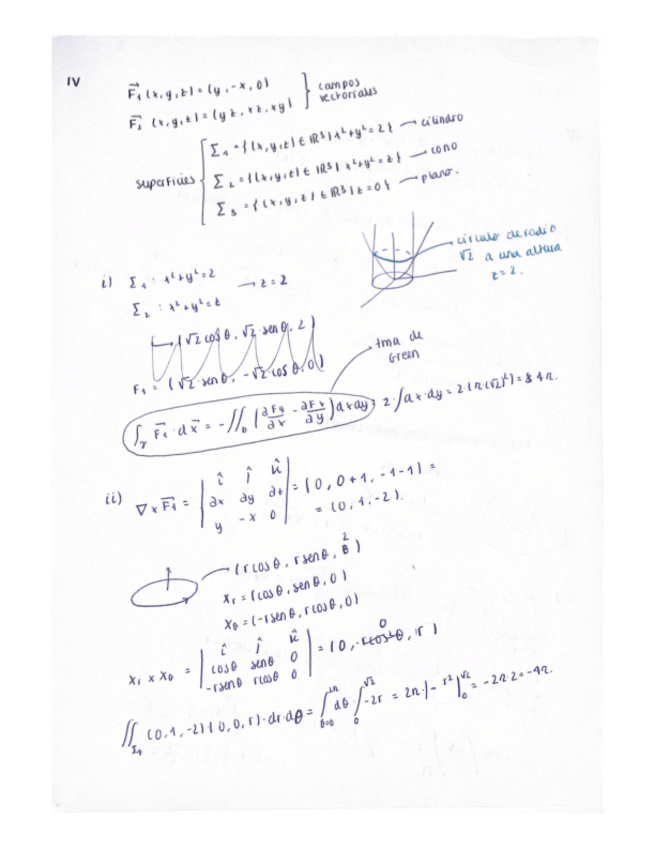 IV
F⃗₁ (x,y,z) = (y, -x, 0)
F⃗₂ (x,y,z) = (yz, xz, xy)
campos vectoriales
superficies
Σ₁ = {(x,y,z) ∈ ℝ³ | x²+y² = 2} → cilindro
Σ₂ = {(x,y,z) ∈ ℝ³ | x²+y² = z} → cono
Σ₃ = {(x,y,z) ∈ ℝ³ | z = 0} → plano.
círculo de radio
√2 a una altura
z = 2.
i) Σ₁ : x²+y² = 2
→ z = 2
Σ₂ : x²+y² = z
(√2 cos θ, √2 sen θ, 2)
F₁ = (√2 sen θ, -√2 cos θ, 0)
tma de
Green
∫γ F⃗₁ · dx⃗ = -∬D (∂Fy/∂x - ∂Fx/∂y) dxdy = 2·∫dx·dy = 2·(π(√2)²) = 4π.
ii) ∇ x F⃗₁ = | î ĵ k̂ | = (0, 0+1, -1-1) =
∂x ∂y ∂z
y -x 0
= (0, 1, -2).
(r cos θ, r sen θ, 2)
Xr = (cos θ, sen θ, 0)
Xθ = (-r sen θ, r cos θ, 0)
Xr x Xθ = | î ĵ k̂ | = (0, 0, r)
cos θ sen θ 0
-r sen θ r cos θ 0
∬Σ₁ (0, 1, -2)·(0, 0, r)·dr·dθ = ∫θ=0^2π dθ · ∫0^√2 -2r = 2π·|-r²|0^√2 = -2π·2 = -4π.